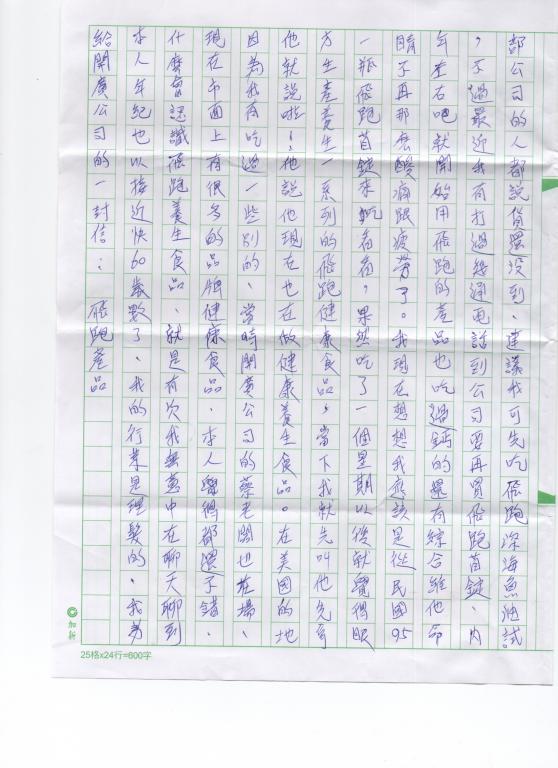 給開廣公司的一封信： 飛跑產品
本人年紀也以接近快60歲數了、我的行業是理髮的．我為
什麼會認識飛跑養生食品、就是有次我無意中在聊天聊到
現在市面上有很多的品牌健康食品．本人覺得都還不錯．
因為我有吃過一些別的、當時開廣公司的蔡老闆也在場、
他就說啦！他說他現在也在做健康養生食品。在美國的地
方生產養生一系列的飛跑健康食品，當下我就先叫他先寄
一瓶飛跑錠來吃看看，果然吃了一個星期以後就覺得眼
睛不再那麼酸痛跟疲勞了。我現在想想我應該是從民國95
年左右吧就開始用飛跑的產品也吃過鈣的還有綜合維他命
，不過最近我有打過幾通電話到公司要再買飛跑錠、內
部公司的人都說貨還沒到、建議我可先吃飛跑深海魚油試
加新
25格x24行=600字